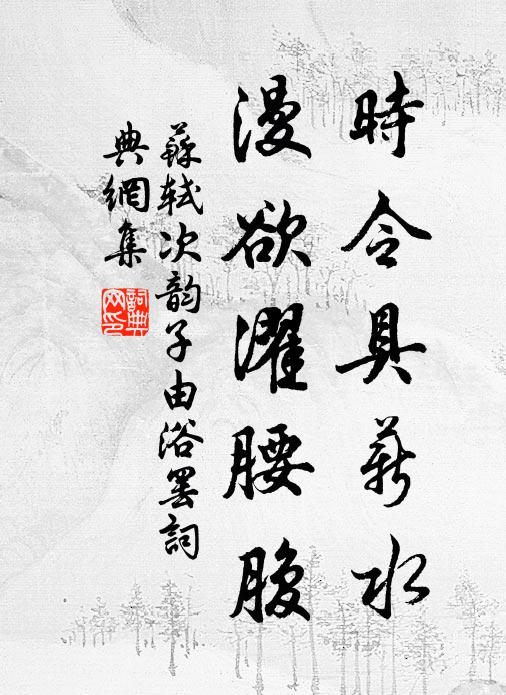 時令具薪水
漫欲濯腰腹
蘇軾次韵子由浴罢詞
典網集
詞典
网印